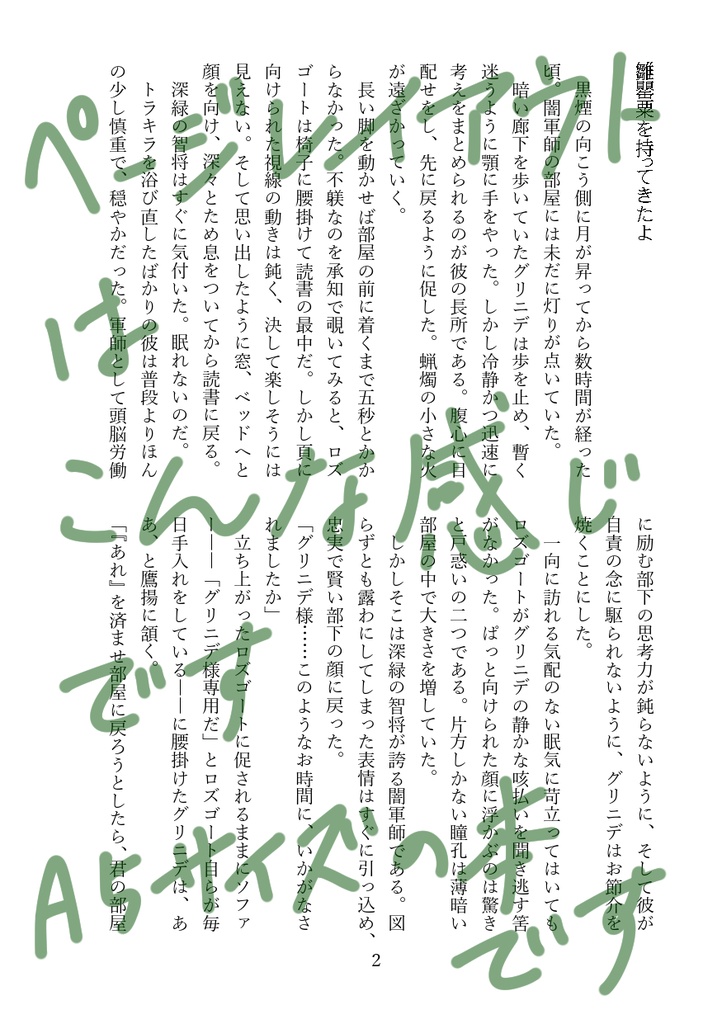 雛罌粟を持ってきたよ
黒煙の向こう側に月が昇ってから数時間が経った
頃。闇軍師の部屋には未だに灯りが点いていた。
暗い廊下を歩いていたグリニデは歩を止め、暫く
迷うように顎に手をやった。しかし冷静かつ迅速に
考えをまとめられるのが彼の長所である。腹心に目
配せをし、先に戻るように促した。蝋燭の小さな火
が遠ざかっていく。
長い脚を動かせば部屋の前に着くまで五秒とかか
らなかった。不躾なのを承知で覗いてみると、ロズ
ゴートは椅子に腰掛けて読書の最中だ。しかし頁に
向けられた視線の動きは鈍く、決して楽しそうには
見えない。そして思い出したように窓、ベッドへと
顔を向け、深々とため息をついてから読書に戻る。
深緑の智将はすぐに気付いた。眠れないのだ。
トラキラを浴び直したばかりの彼は普段よりほん
の少し慎重で、穏やかだった。軍師として頭脳労働
に励む部下の思考力が鈍らないように、そして彼が
自責の念に駆られないように、グリニデはお節介を
焼くことにした。
一向に訪れる気配のない眠気に苛立ってはいても
ロズゴートがグリニデの静かな咳払いを聞き逃す筈
がなかった。ぱっと向けられた顔に浮かぶのは驚き
と戸惑いの二つである。片方しかない瞳孔は薄暗い
部屋の中で大きさを増していた。
しかしそこは深緑の智将が誇る闇軍師である。図
らずとも露わにしてしまった表情はすぐに引っ込め、
忠実で賢い部下の顔に戻った。
「グリニデ様……このようなお時間に、いかがなさ
れましたか」
立ち上がったロズゴートに促されるままにソファ
ー――「グリニデ様専用だ」とロズゴート自らが毎
日手入れをしている――に腰掛けたグリニデは、あ
あ、と鷹揚に頷く。
「『あれ』を済ませ部屋に戻ろうとしたら、君の部屋
2
ページレイアウト
は
こんな感じ
です
A5サイズの本
です